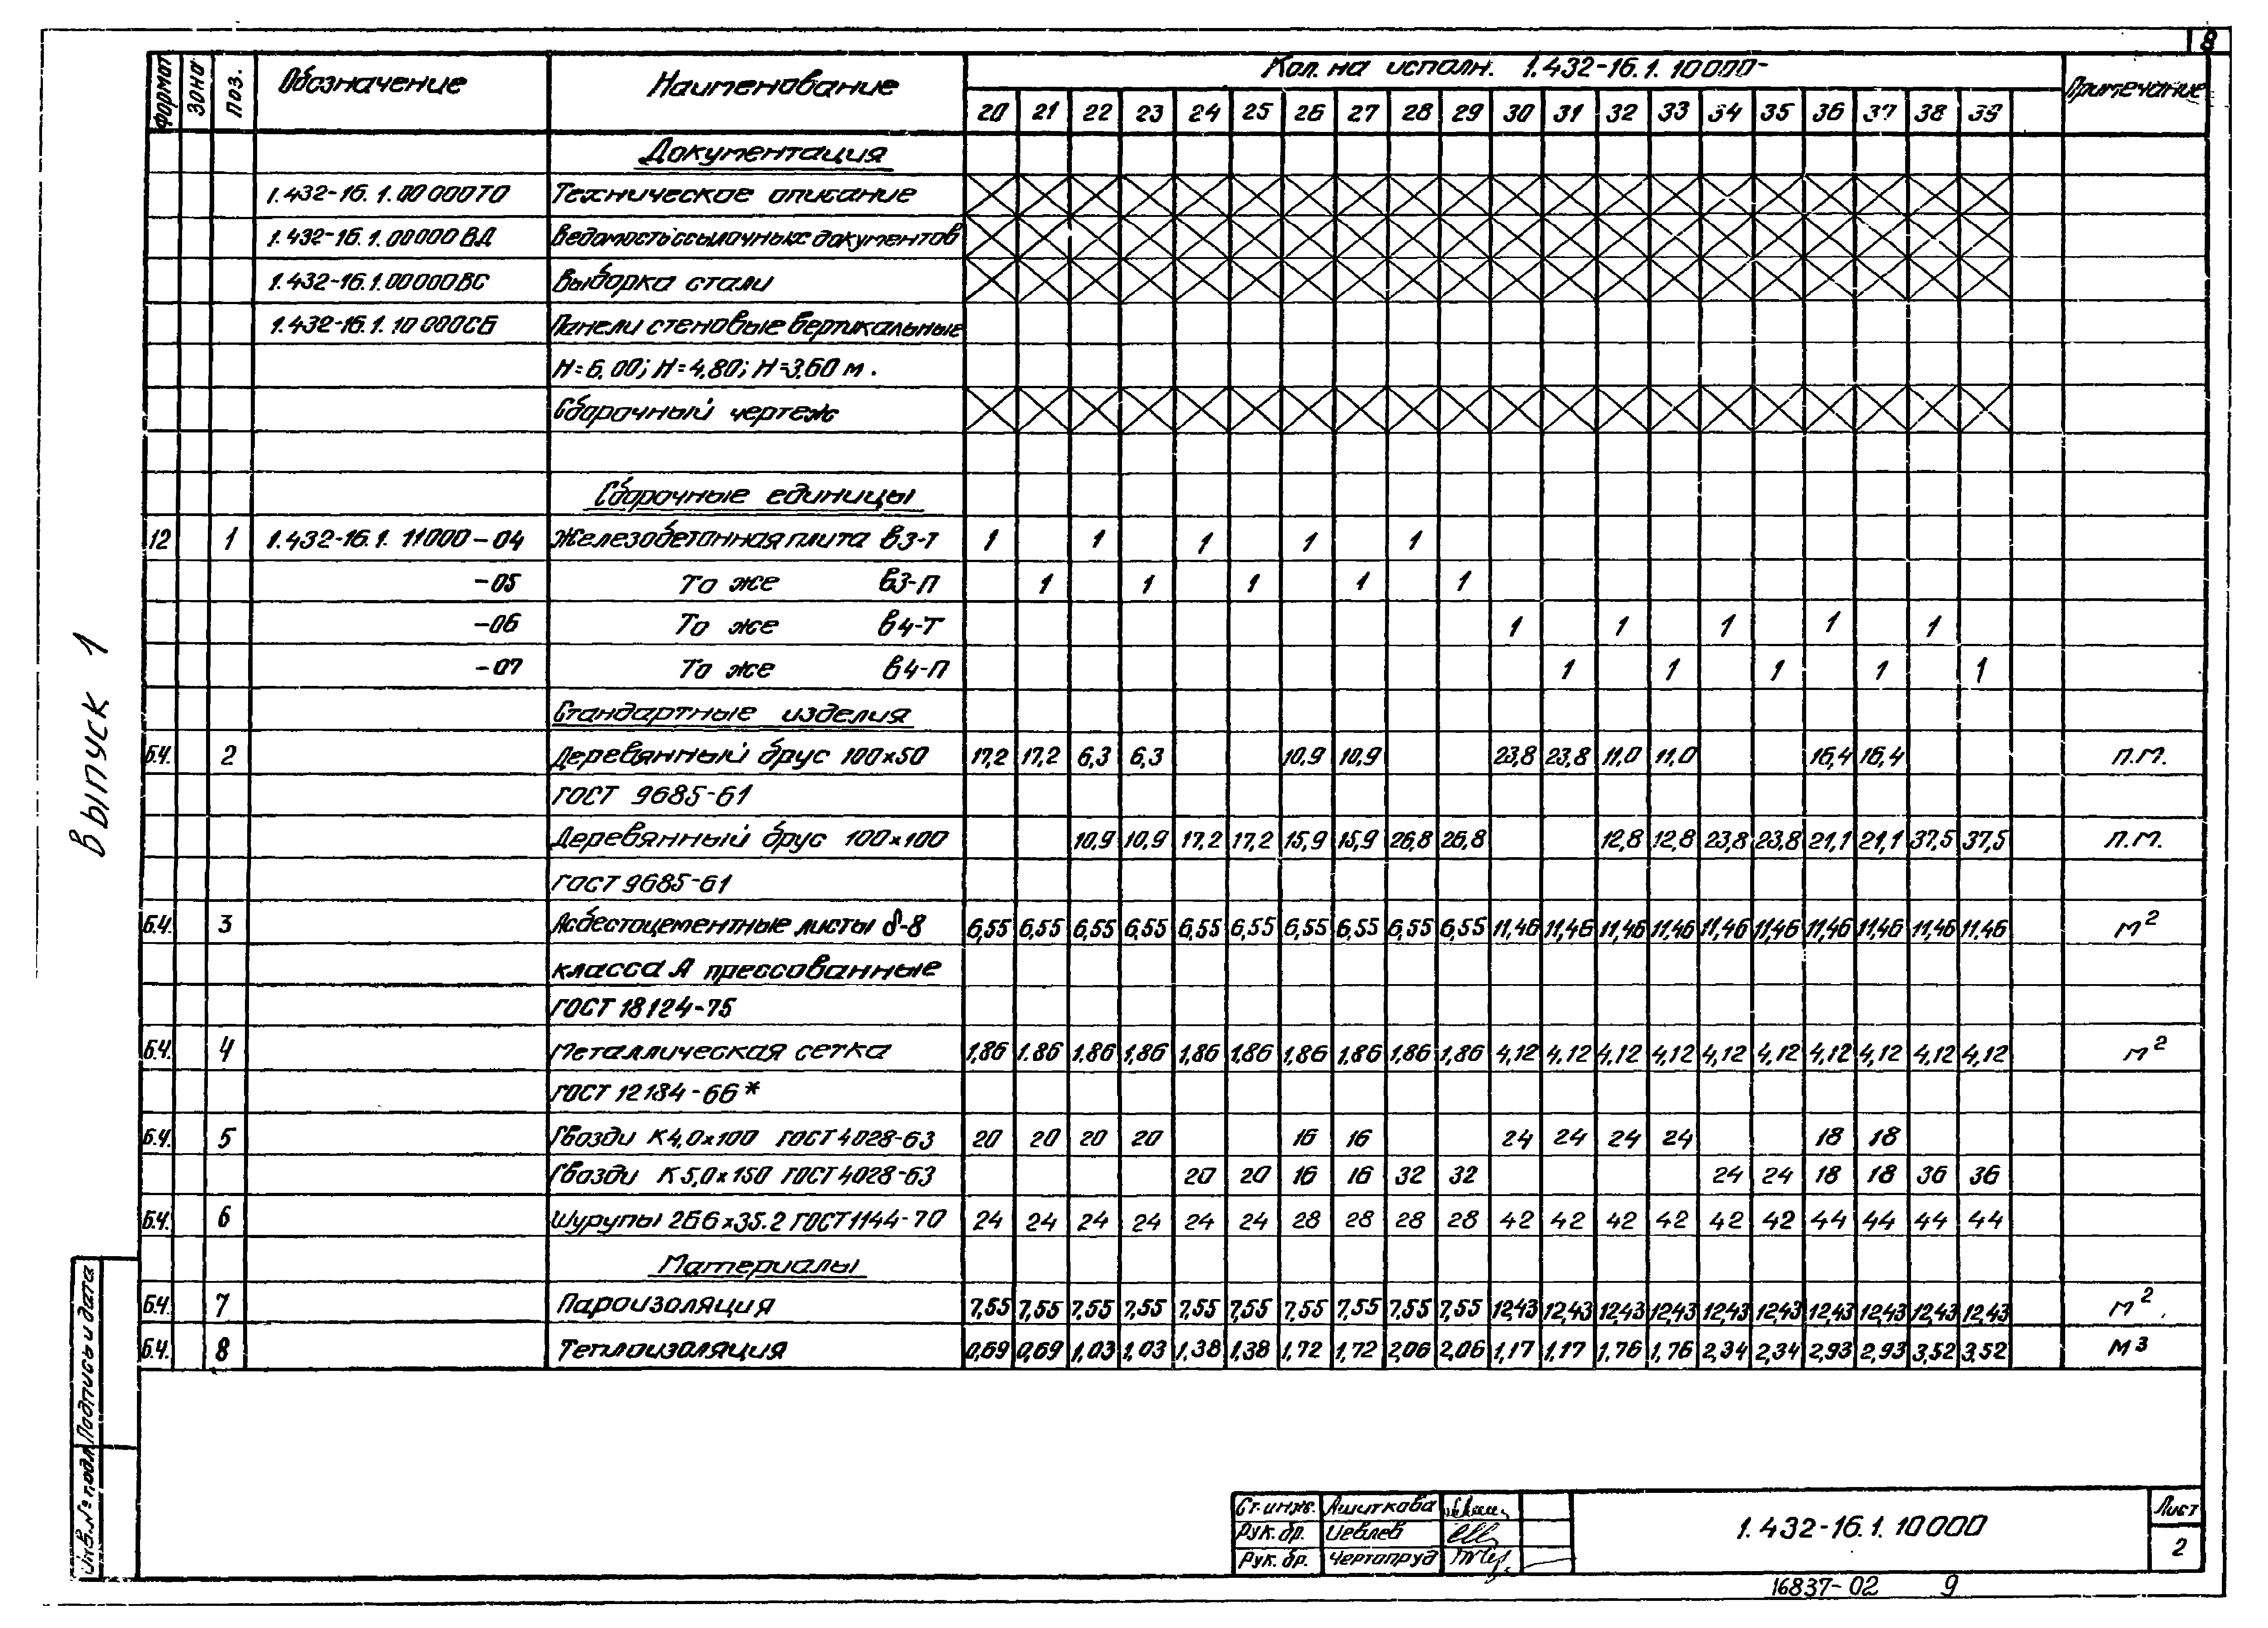 8
Формат Зона Поз. Обозначение Наименование Кол. на исполн. 1.432-16.1.10000- Примечание
20 21 22 23 24 25 26 27 28 29 30 31 32 33 34 35 36 37 38 39
Документация
1.432-16.1.00000ТО Техническое описание
1.432-16.1.00000ВД Ведомость ссылочных документов
1.432-16.1.00000ВС Выборка стали
1.432-16.1.10000СБ Панели стеновые вертикальные
Н=6,00; Н=4,80; Н=3,60 м.
Сборочный чертеж
Сборочные единицы
12 1 1.432-16.1.11000-04 Железобетонная плита В3-Т 1 1 1 1 1
-05 То же В3-П 1 1 1 1 1
-06 То же В4-Т 1 1 1 1 1
-07 То же В4-П 1 1 1 1 1
Стандартные изделия
Б.Ч. 2 Деревянный брус 100×50 17,2 17,2 6,3 6,3 10,9 10,9 23,8 23,8 11,0 11,0 16,4 16,4 п.м.
ГОСТ 9685-61
Деревянный брус 100×100 10,9 10,9 17,2 17,2 15,9 15,9 26,8 26,8 12,8 12,8 23,8 23,8 21,1 21,1 37,5 37,5 п.м.
ГОСТ 9685-61
Б.Ч. 3 Асбестоцементные листы δ-8 6,55 6,55 6,55 6,55 6,55 6,55 6,55 6,55 6,55 6,55 11,46 11,46 11,46 11,46 11,46 11,46 11,46 11,46 11,46 11,46 м²
класса А прессованные
ГОСТ 18124-75
Б.Ч. 4 Металлическая сетка 1,86 1.86 1,86 1,86 1,86 1,86 1,86 1,86 1,86 1,86 4,12 4,12 4,12 4,12 4,12 4,12 4,12 4,12 4,12 4,12 м²
ГОСТ 12184-66*
Б.Ч. 5 Гвозди К4,0×100 ГОСТ 4028-63 20 20 20 20 16 16 24 24 24 24 18 18
Гвозди К5,0×150 ГОСТ 4028-63 20 20 16 16 32 32 24 24 18 18 36 36
Б.Ч. 6 Шурупы 2Б6×35.2 ГОСТ 1144-70 24 24 24 24 24 24 28 28 28 28 42 42 42 42 42 42 44 44 44 44
Материалы
Б.Ч. 7 Пароизоляция 7,55 7,55 7,55 7,55 7,55 7,55 7,55 7,55 7,55 7,55 12,43 12,43 12,43 12,43 12,43 12,43 12,43 12,43 12,43 12,43 м²
Б.Ч. 8 Теплоизоляция 0,69 0,69 1,03 1,03 1,38 1,38 1,72 1,72 2,06 2,06 1,17 1,17 1,76 1,76 2,34 2,34 2,93 2,93 3,52 3,52 м³
Выпуск 1
Инв. № подл. Подпись и дата
Ст. инж. Ашиткова
Рук. бр. Иевлев
Рук. бр. Чертопруд
1.432-16.1.10000
Лист
2
16837-02 9